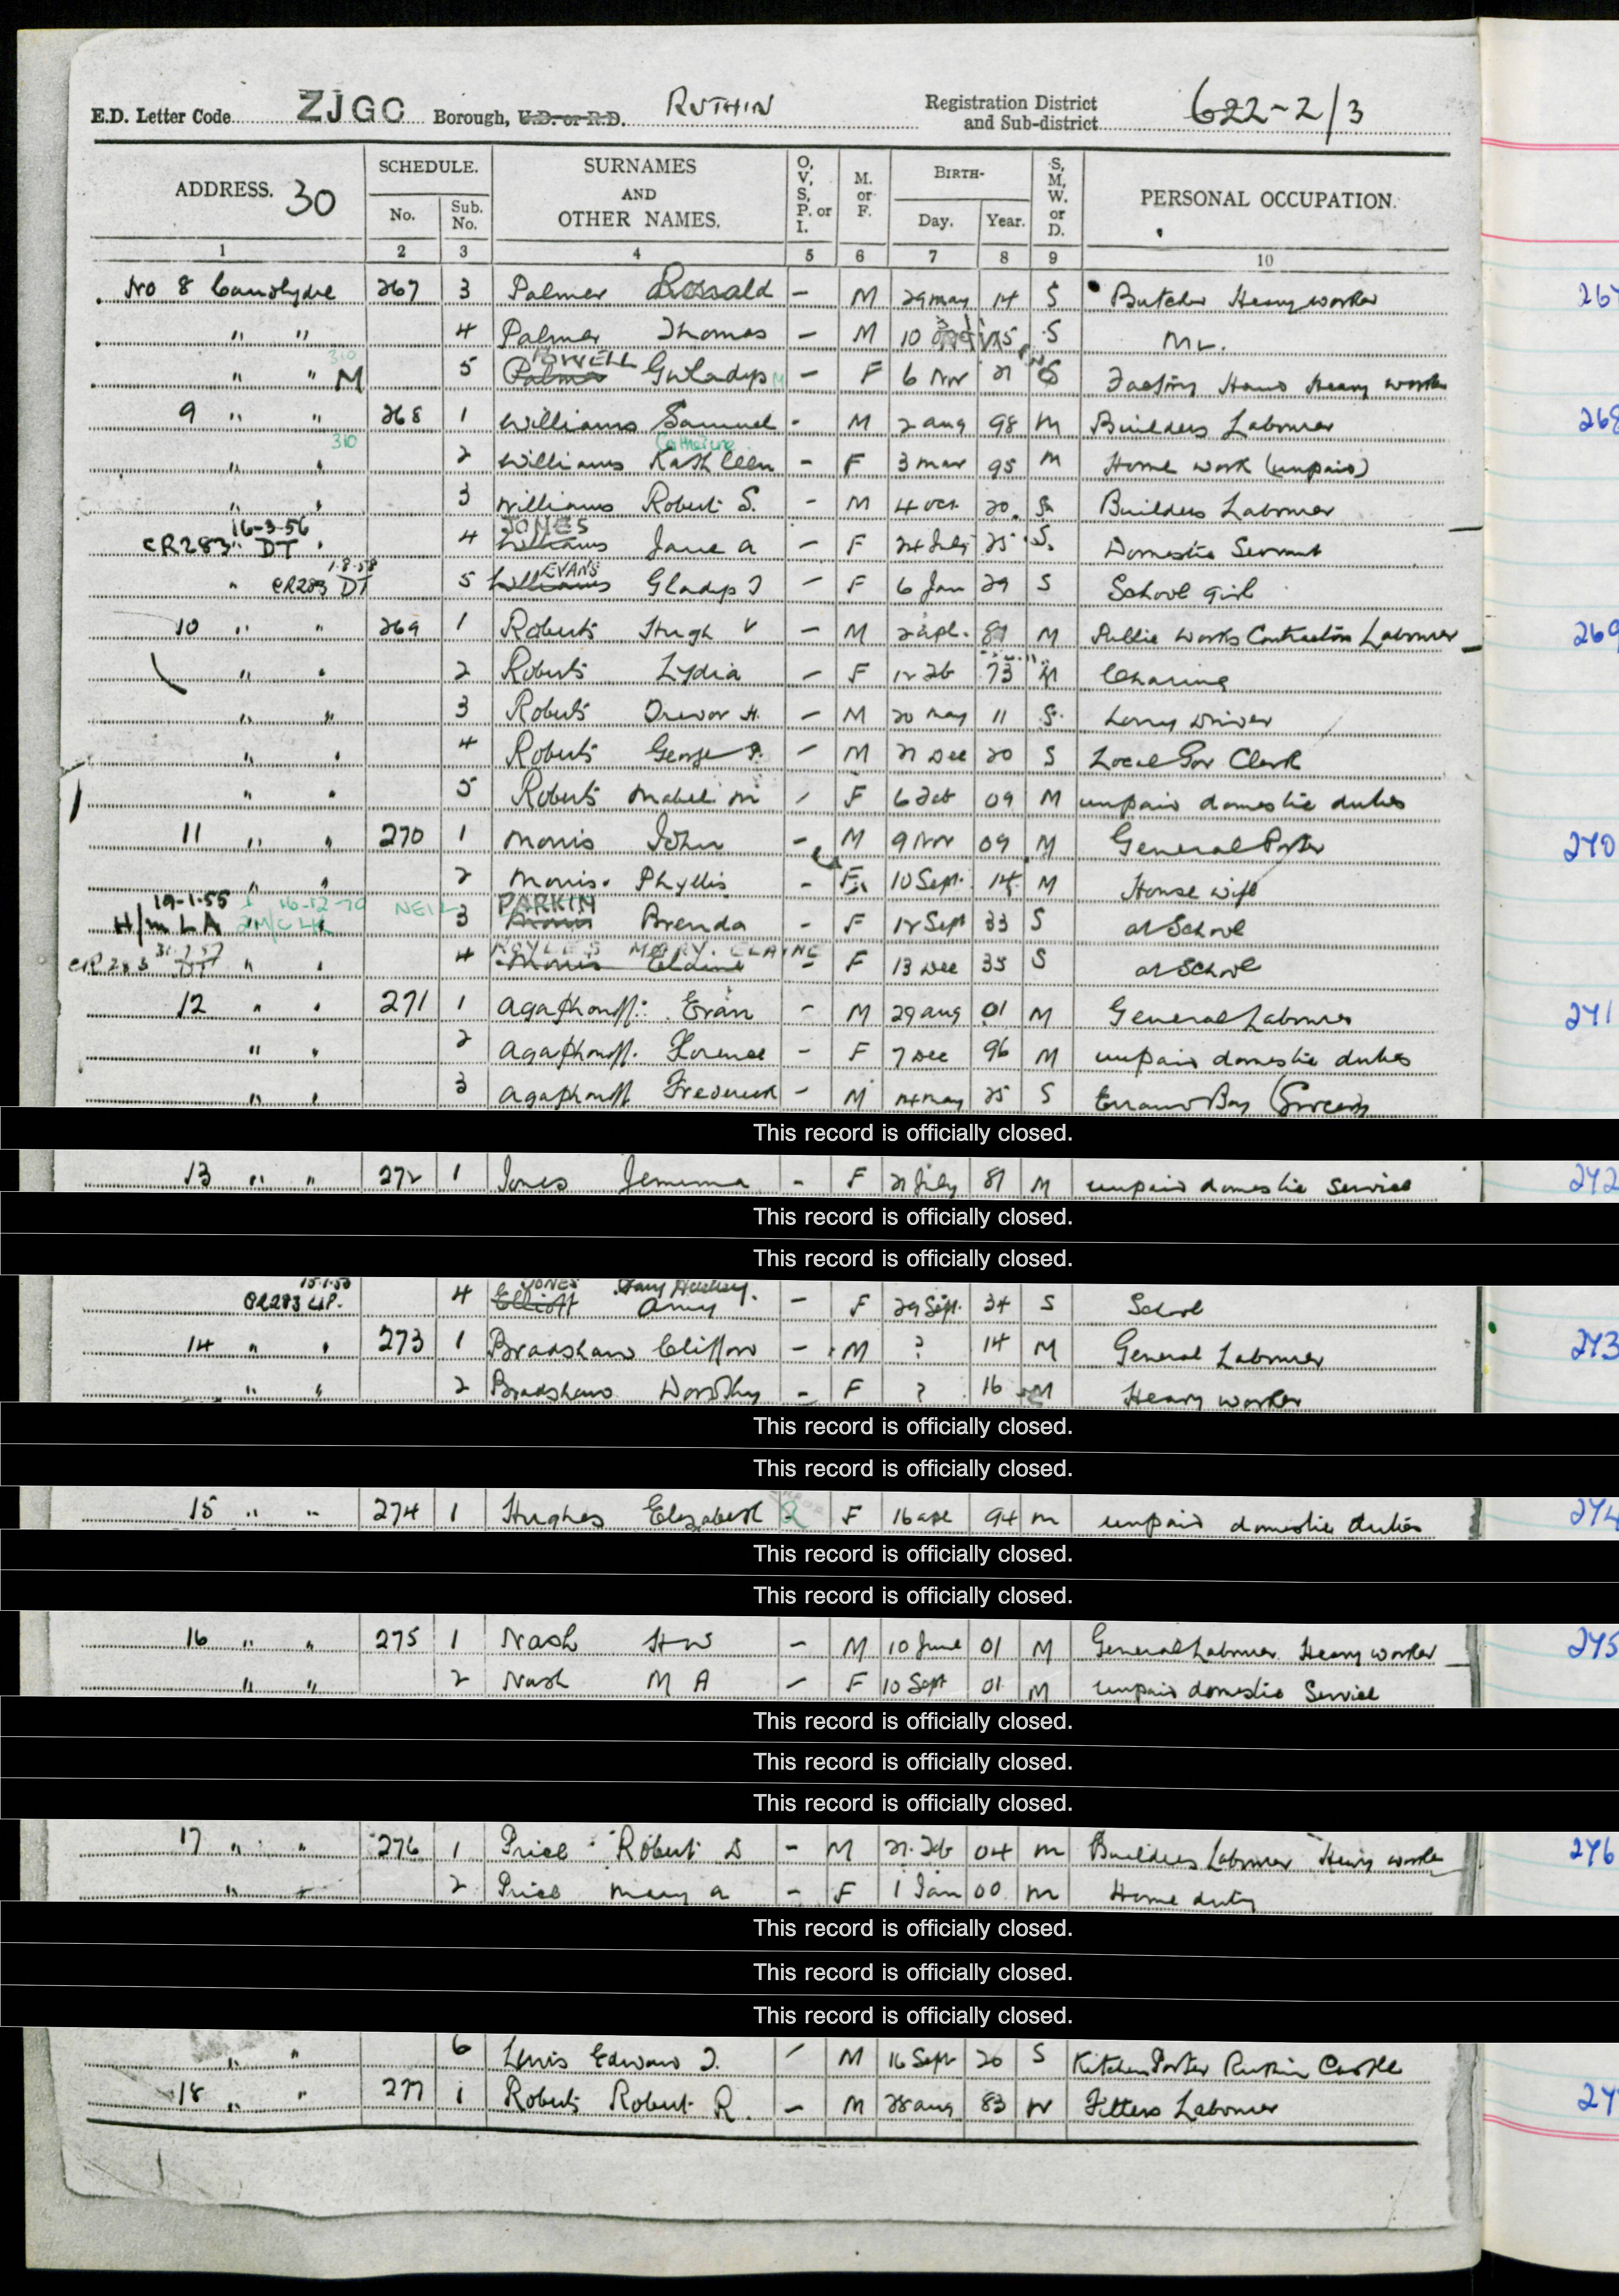 E.D. Letter Code ZJGC Borough, U.D. or R.D. RUTHIN Registration District and Sub-district 622-2/3
ADDRESS. 30 SCHEDULE. No. Sub. No. SURNAMES AND OTHER NAMES. O, V, S, P. or I. M. or F. BIRTH- Day. Year. S, M, W. or D. PERSONAL OCCUPATION.
1 2 3 4 5 6 7 8 9 10
No 8 267 3 Palmer - M 29 May 14 S Butcher Heavy worker
" " 4 Palmer Thomas - M 10 S
310
POWELL
" " M 5 Palmer Gwladys M - F 6 Nov 21 S Factory Hand Heavy worker
9 " " 268 1 Williams Samuel - M 2 Aug 98 M Builders Labourer 268
310 Catherine
" " 2 Williams Kathleen - F 3 Mar 95 M Home work (unpaid)
" " 3 Williams Robert S. - M 4 Oct 20 S Builders Labourer
16-3-56 JONES
CR283 DT 4 Williams Jane A - F 24 July 25 S. Domestic Servant
1.8.58 EVANS
" CR283 DT 5 Williams Gladys - F 6 Jan 29 S School girl
10 " " 269 1 Roberts Hugh V - M 2 Apl. 81 M Public Works Contractors Labourer 269
" " 2 Roberts Lydia - F 12 Feb 73 M
" " 3 Roberts Trevor H. - M 20 May 11 S. Lorry Driver
" " 4 Roberts George - M 21 Dec 20 S Local Gov Clerk
" " 5 Roberts Mabel M - F 6 Feb 09 M unpaid domestic duties
11 " " 270 1 Morris John - M 9 Nov 09 M General Porter 270
" " 2 Morris. Phyllis - F 10 Sept. 14 M House wife
19-1-55 16-12-70 NEIL PARKIN
H/m LA 3 Morris Brenda - F 12 Sept 33 S at School
ROYLES MARY. ELAYNE
CR 283 DT " " 4 Morris Elaine - F 13 Dec 35 S at School
12 " " 271 1 Agaphonoff. Evan - M 29 Aug 01 M General Labourer 271
" " 2 Agaphonoff. Florence - F 7 Dec 96 M unpaid domestic duties
" " 3 Agaphonoff Frederick - M 14 May 25 S Errand Boy (Grocery
This record is officially closed.
13 " " 272 1 Jones Jemima - F 21 July 81 M unpaid domestic service 272
This record is officially closed.
This record is officially closed.
JONES
CR283 4 Elliott Amy - F 29 Sept. 34 S School
14 " " 273 1 Bradshaw Clifford - M ? 14 M General Labourer 273
" " 2 Bradshaw Dorothy - F ? 16 M Heavy worker
This record is officially closed.
This record is officially closed.
15 " " 274 1 Hughes Elizabeth F 16 Apl 94 M unpaid domestic duties 274
This record is officially closed.
This record is officially closed.
16 " " 275 1 Nash H W - M 10 June 01 M General Labourer Heavy worker 275
" " 2 Nash M A - F 10 Sept 01 M unpaid domestic Service
This record is officially closed.
This record is officially closed.
This record is officially closed.
17 " " 276 1 Price Robert D - M 21 Feb 04 M Builders Labourer Heavy worker 276
" " 2 Price Mary A - F 1 Jan 00 M Home duty
This record is officially closed.
This record is officially closed.
This record is officially closed.
" " 6 Lewis Edward - M 16 Sept 20 S Kitchen Porter Ruthin Castle
18 " " 277 1 Roberts Robert R. - M 28 Aug 83 W Fitters Labourer